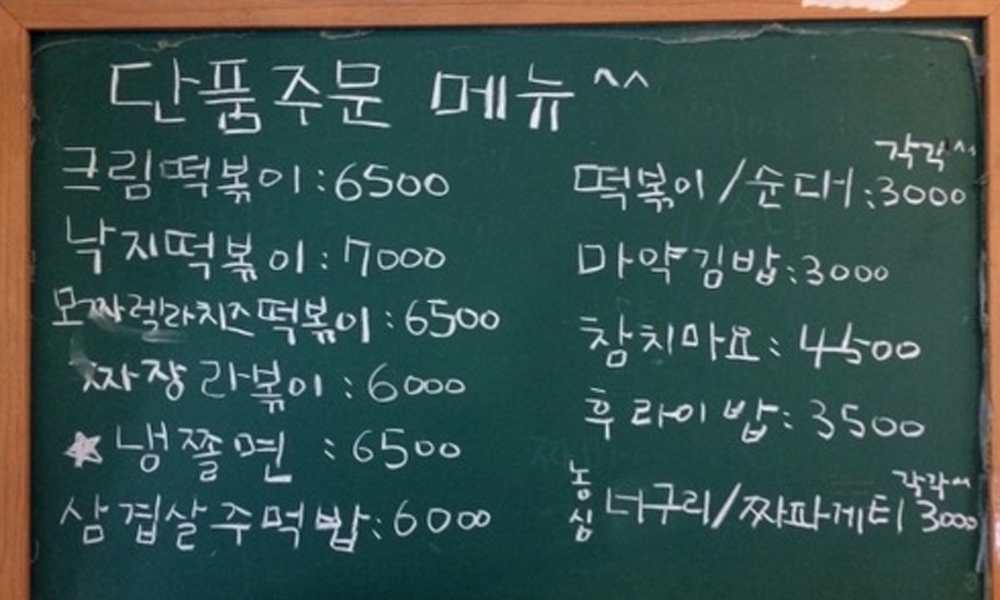 단품주문 메뉴 ^^
크림떡볶이 : 6500
낙지떡볶이 : 7000
모짜렐라치즈떡볶이 : 6500
짜장라볶이 : 6000
★ 냉쫄면 : 6500
삼겹살주먹밥 : 6000
각각^^
떡볶이/순대 : 3000
마약김밥 : 3000
참치마요 : 4500
후라이밥 : 3500
농심 너구리/짜파게티 각각^^ 3000